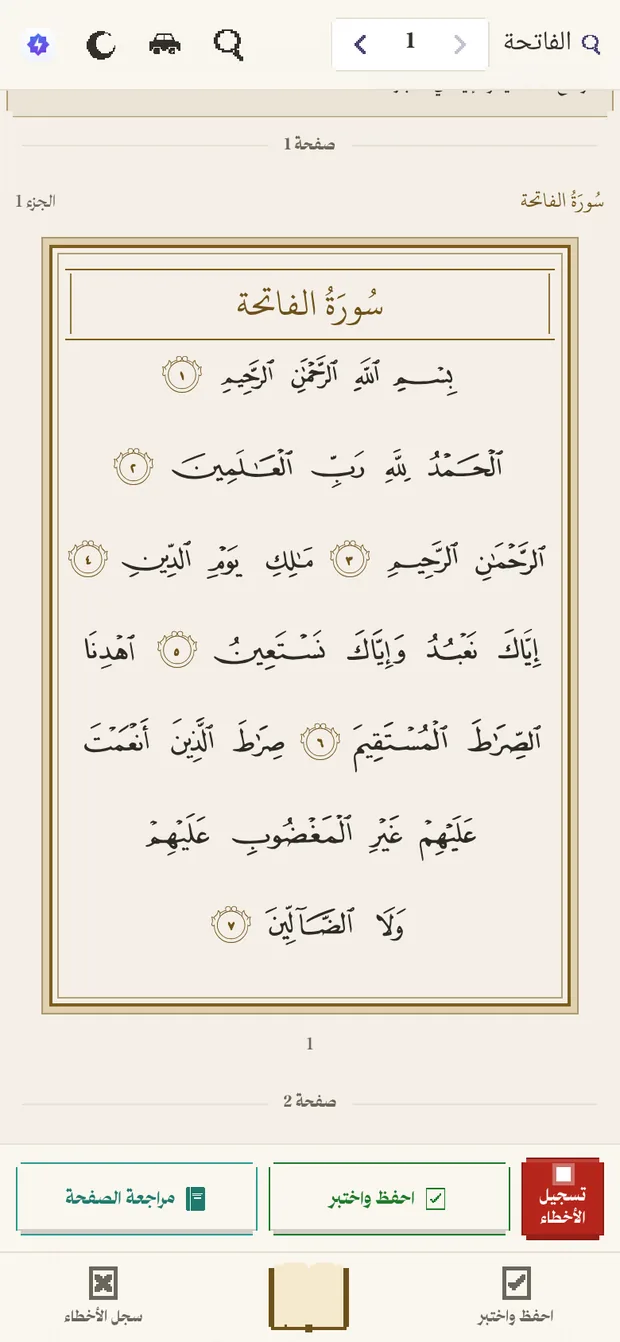 الفاتحة
1
صفحة 1
سُورَةُ الفاتحة
الجزء 1
سُورَةُ الفاتحة
بِسْمِ ٱللَّهِ ٱلرَّحْمَٰنِ ٱلرَّحِيمِ ١
ٱلْحَمْدُ لِلَّهِ رَبِّ ٱلْعَـٰلَمِينَ ٢
ٱلرَّحْمَٰنِ ٱلرَّحِيمِ ٣ مَـٰلِكِ يَوْمِ ٱلدِّينِ ٤
إِيَّاكَ نَعْبُدُ وَإِيَّاكَ نَسْتَعِينُ ٥ ٱهْدِنَا
ٱلصِّرَٰطَ ٱلْمُسْتَقِيمَ ٦ صِرَٰطَ ٱلَّذِينَ أَنْعَمْتَ
عَلَيْهِمْ غَيْرِ ٱلْمَغْضُوبِ عَلَيْهِمْ
وَلَا ٱلضَّآلِّينَ ٧
1
صفحة 2
تسجيل الأخطاء
احفظ واختبر
مراجعة الصفحة
احفظ واختبر
سجل الأخطاء